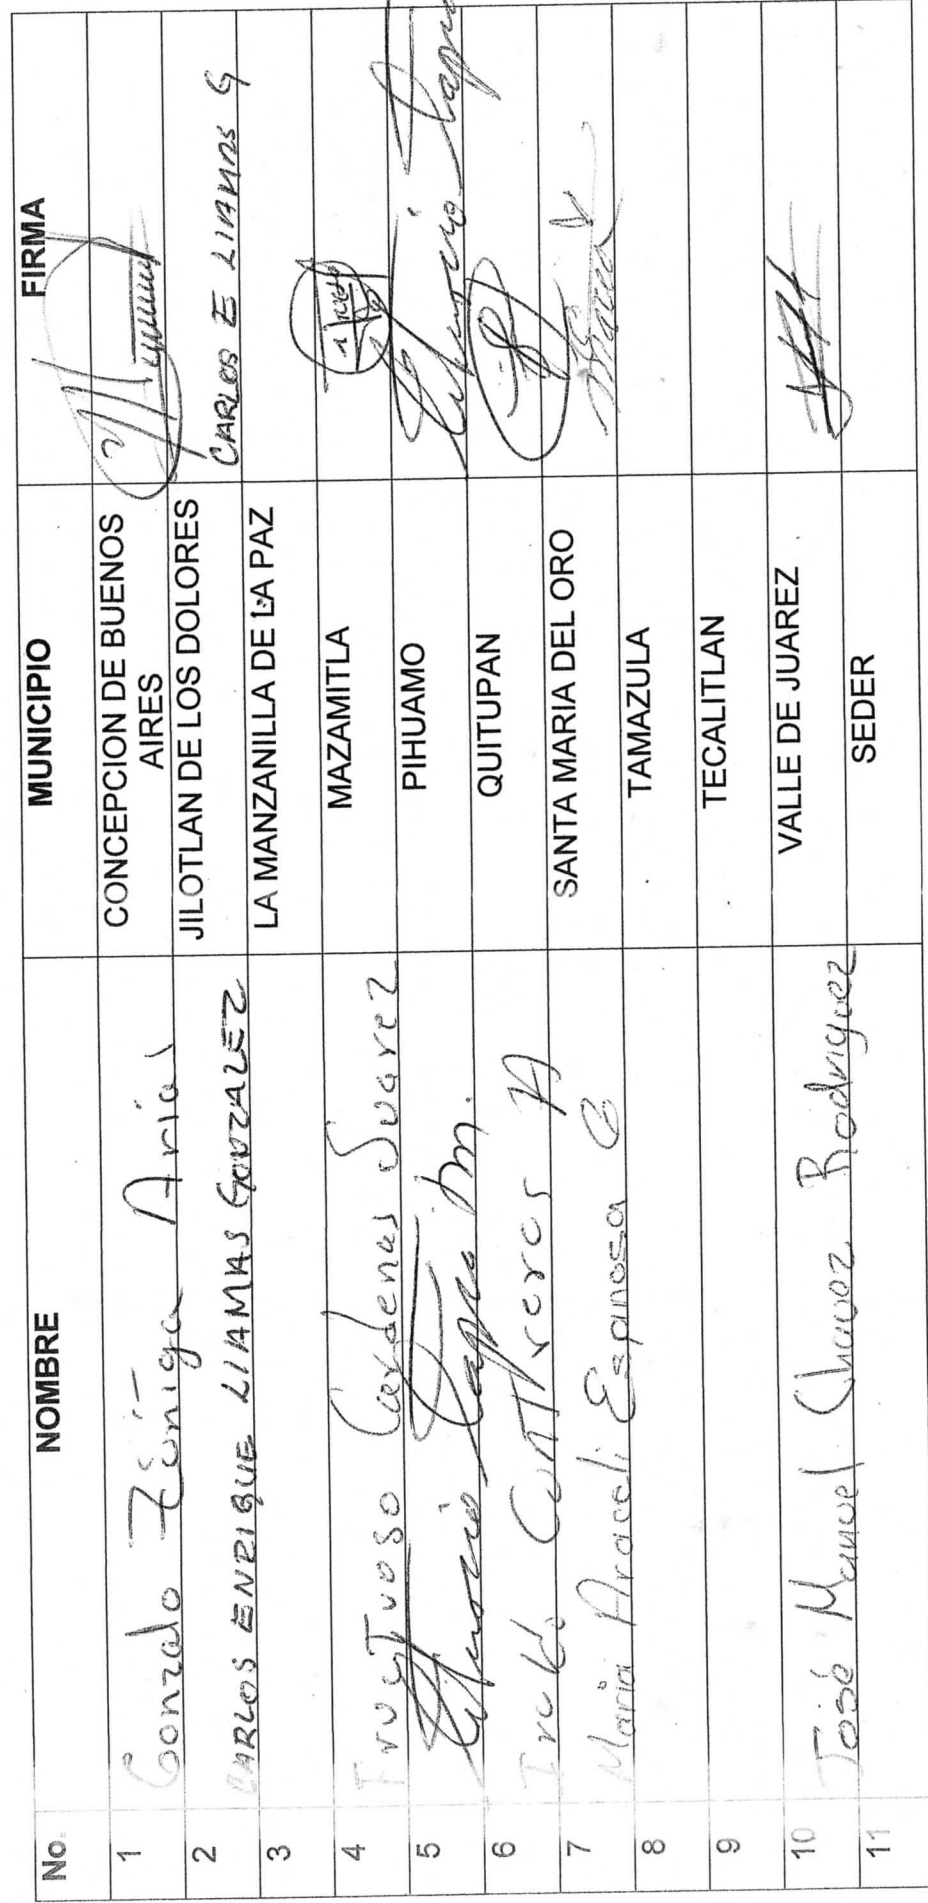 No. NOMBRE MUNICIPIO FIRMA
1 Gonzalo Zúñiga Arias CONCEPCION DE BUENOS
AIRES
2 CARLOS ENRIQUE LLAMAS GONZALEZ JILOTLAN DE LOS DOLORES CARLOS E LLAMAS G
3 LA MANZANILLA DE LA PAZ
4 Fructuoso Cardenas Suarez MAZAMITLA
5 Tapia M. PIHUAMO Tapia
6 Contreras A QUITUPAN
7 Maria Araceli Espinosa C SANTA MARIA DEL ORO
8 TAMAZULA
9 TECALITLAN
10 José Manuel Chavez Rodriguez VALLE DE JUAREZ
11 SEDER